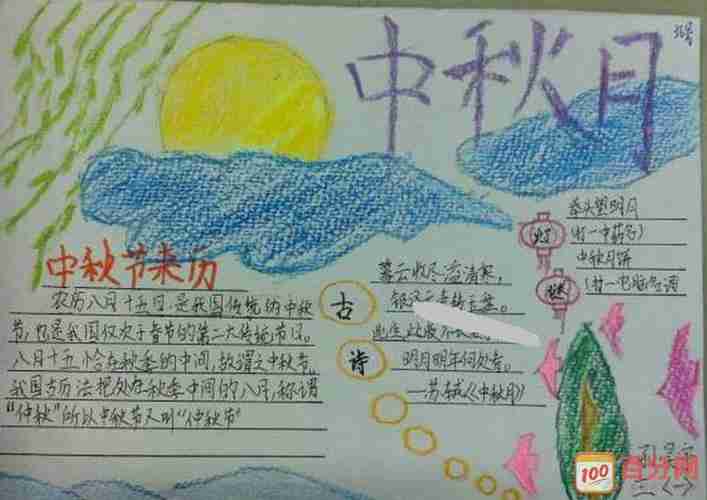 中秋月
中秋节来历
农历八月十五日,是我国传统的中秋
节,也是我国仅次于春节的第二大传统节日。
八月十五恰在秋季的中间,故谓之中秋节。
我国古历法把处在秋季中间的八月,称谓
“仲秋”所以中秋节又叫“仲秋节”
古
诗
暮云收尽溢清寒,
明月明年何处看。
—苏轼《中秋月》
灯
谜
举头望明月
(打一中药名)
中秋月饼
(打一电脑名词
100 百分网